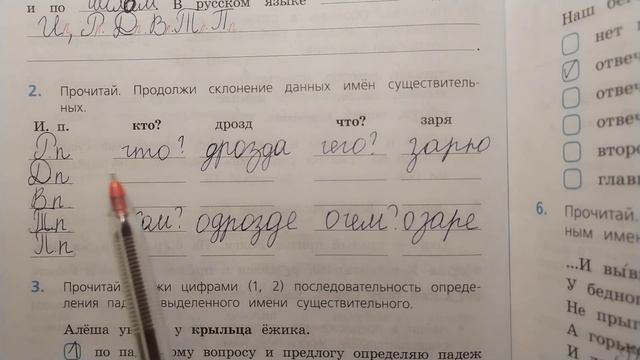 и по шести. В русском языке
И, Р. Д. В. Т. П.
2. Прочитай. Продолжи склонение данных имён существитель-
ных.
И. п. кто? дрозд что? заря
Рп что? дрозда чего? зарю
Дп
Вп
Тп ком? одрозде очем? озаре
Пп
3. Прочитай. жи цифрами (1, 2) последовательность опреде-
ления пад выделенного имени существительного.
Алёша у у крыльца ёжика.
1 по па ому вопросу и предлогу определяю падеж
Наш бе
нет
отвеч
отвеч
отвеч
отвеч
второ
глав
6. Прочитай.
ным имен
...И вы
У бедног
Не прыг
А горь
И